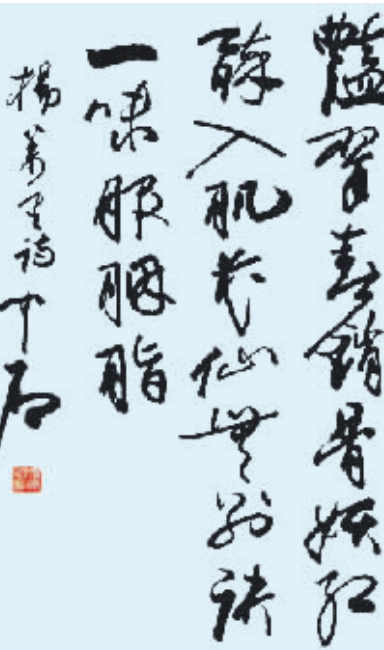 豔翠春銷骨妖紅
醉入肌花仙無別訣
一味服胭脂
楊萬里詩 中石